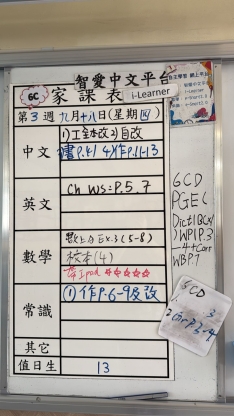 智愛中文平台
i-Learner
6C 家課表
第3週 九月十八日(星期四)
中文
1)工全本改2)自改
書P.41 4)作P.11-13
英文
Ch WS: P.5,7
數學
數上A Ex.3 (5-8)
校本(4)
帶Ipad ☆☆☆☆☆
常識
① 作P.6-9及改
其它
值日生
13
6CD
PGE(
Dict1(BCX)
)WP1P.3
-4+Corr
WBP.7
6CD
1.
3
2.